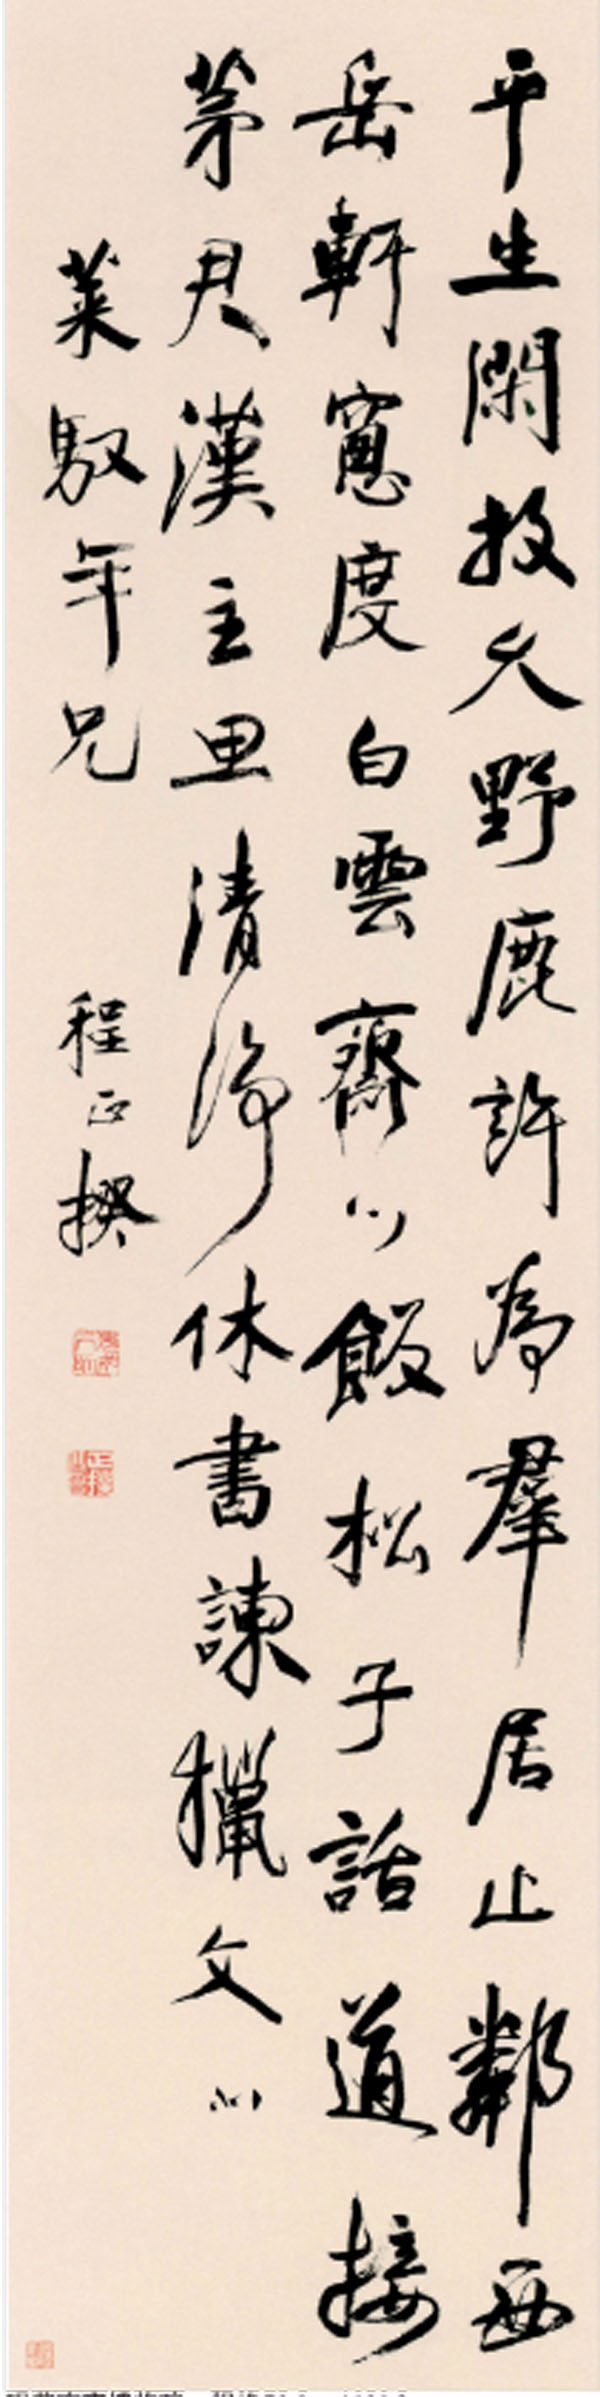 平生閑放久野鹿許為羣居止鄰西
岳軒窻度白雲齋心飯松子話道接
茅君漢主思清淨休書諫獵文
萊馭年兄
程正揆